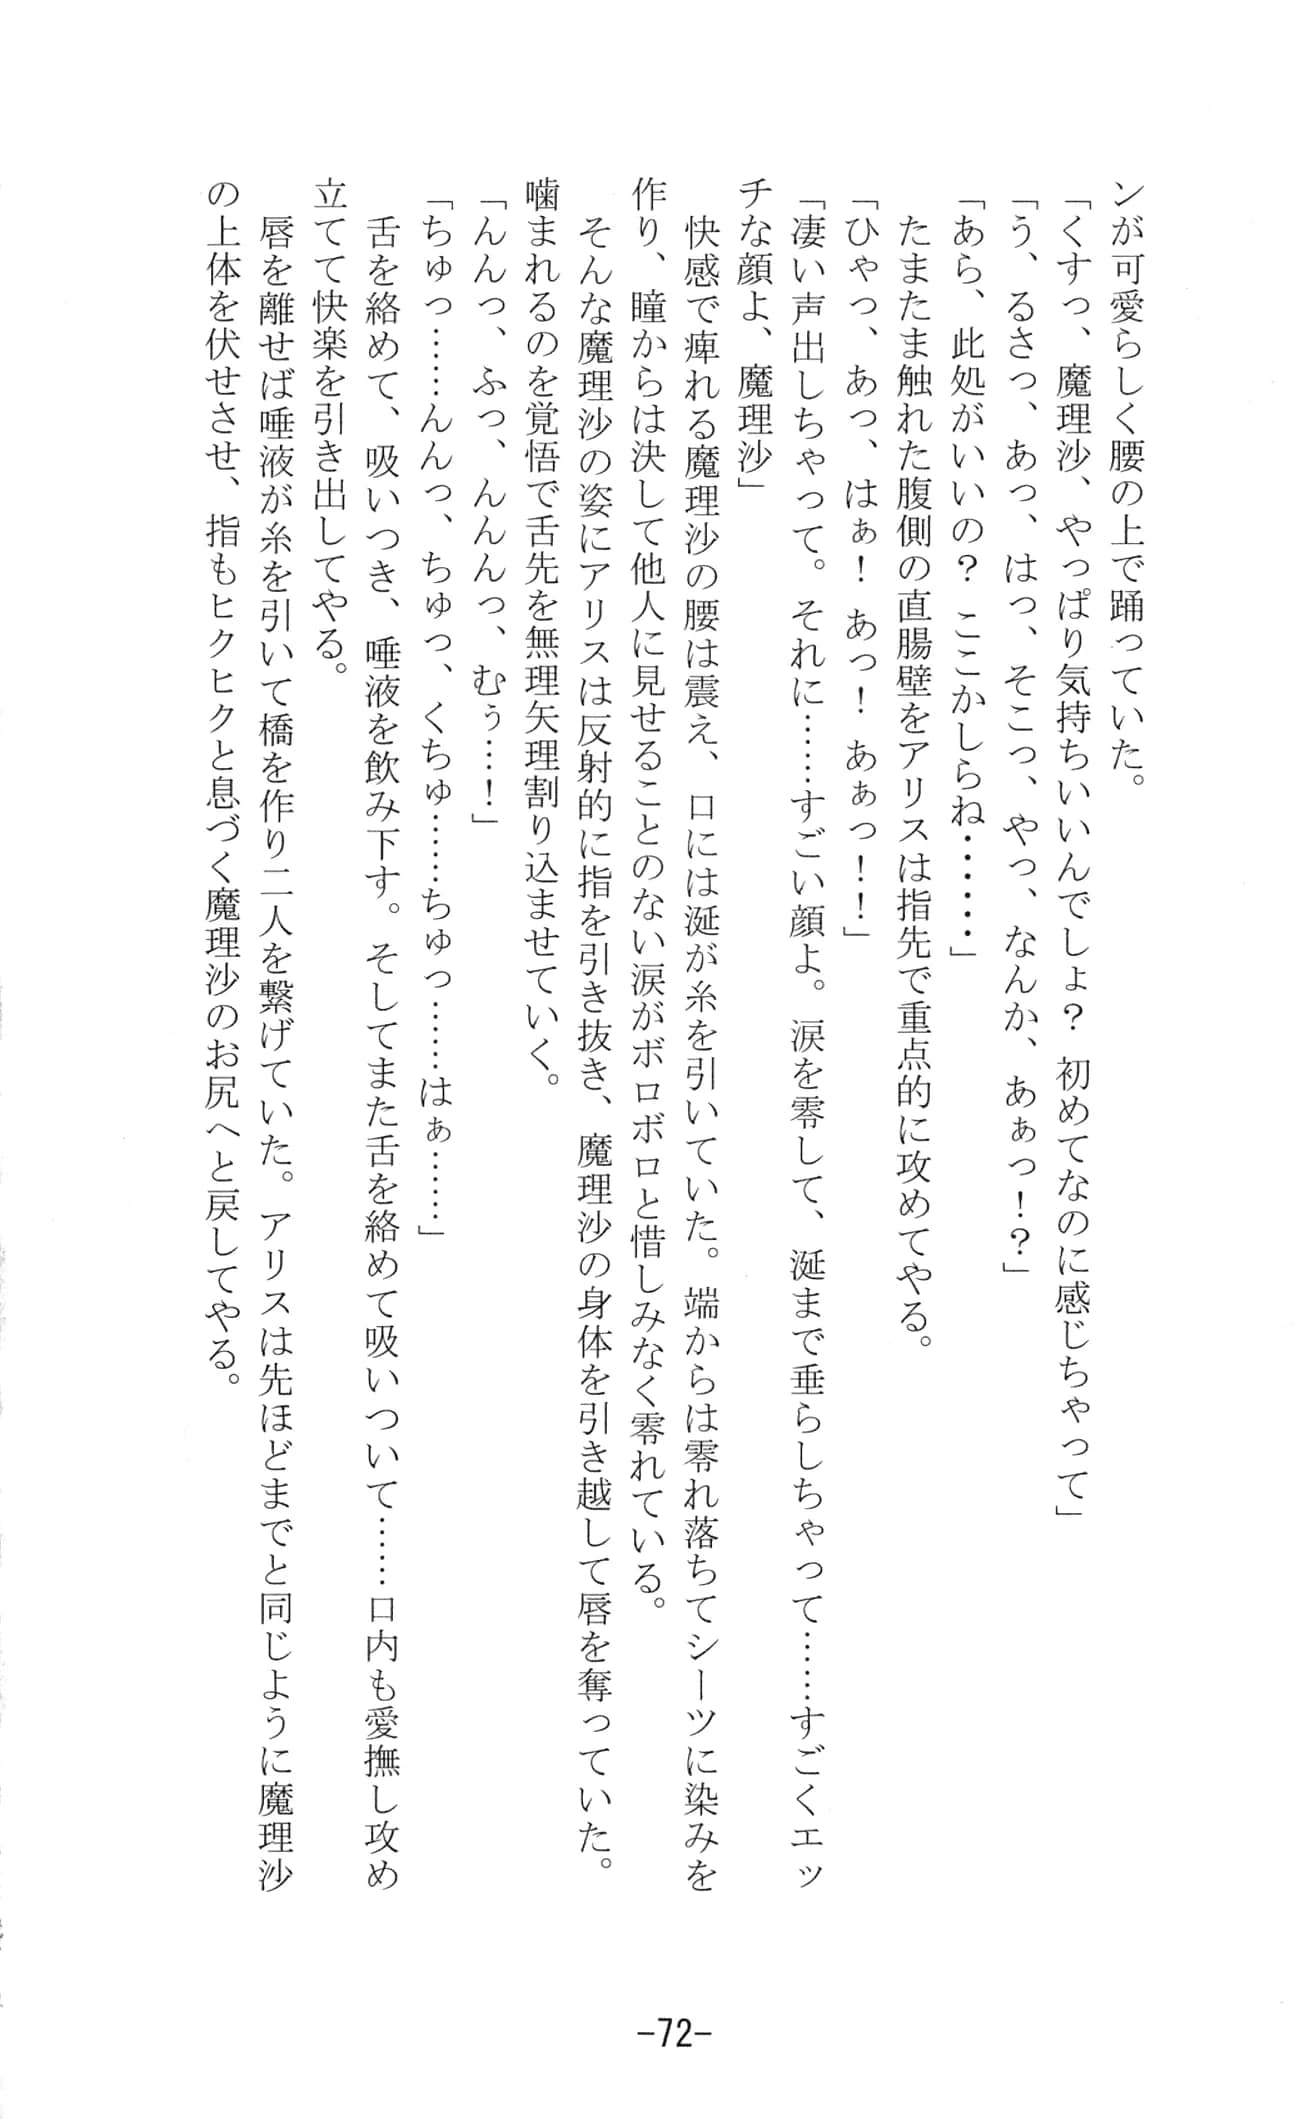 ンが可愛らしく腰の上で踊っていた。
「くすっ、魔理沙、やっぱり気持ちいいんでしょ？ 初めてなのに感じちゃって」
「う、るさっ、あっ、はっ、そこっ、やっ、なんか、あぁっ！？」
「あら、此処がいいの？ ここかしらね・・・・・」
たまたま触れた腹側の直腸壁をアリスは指先で重点的に攻めてやる。
「ひゃっ、あっ、はぁ！ あっ！ あぁっ！！」
「凄い声出しちゃって。それに……すごい顔よ。涙を零して、涎まで垂らしちゃって……すごくエッ
チな顔よ、魔理沙」
快感で痺れる魔理沙の腰は震え、口には涎が糸を引いていた。端からは零れ落ちてシーツに染みを
作り、瞳からは決して他人に見せることのない涙がボロボロと惜しみなく零れている。
そんな魔理沙の姿にアリスは反射的に指を引き抜き、魔理沙の身体を引き越して唇を奪っていた。
噛まれるのを覚悟で舌先を無理矢理割り込ませていく。
「んんっ、ふっ、んんんっ、むぅ…！」
「ちゅっ……んんっ、ちゅっ、くちゅ……ちゅっ……はぁ……」
舌を絡めて、吸いつき、唾液を飲み下す。そしてまた舌を絡めて吸いついて……口内も愛撫し攻め
立てて快楽を引き出してやる。
唇を離せば唾液が糸を引いて橋を作り二人を繋げていた。アリスは先ほどまでと同じように魔理沙
の上体を伏せさせ、指もヒクヒクと息づく魔理沙のお尻へと戻してやる。
-72-